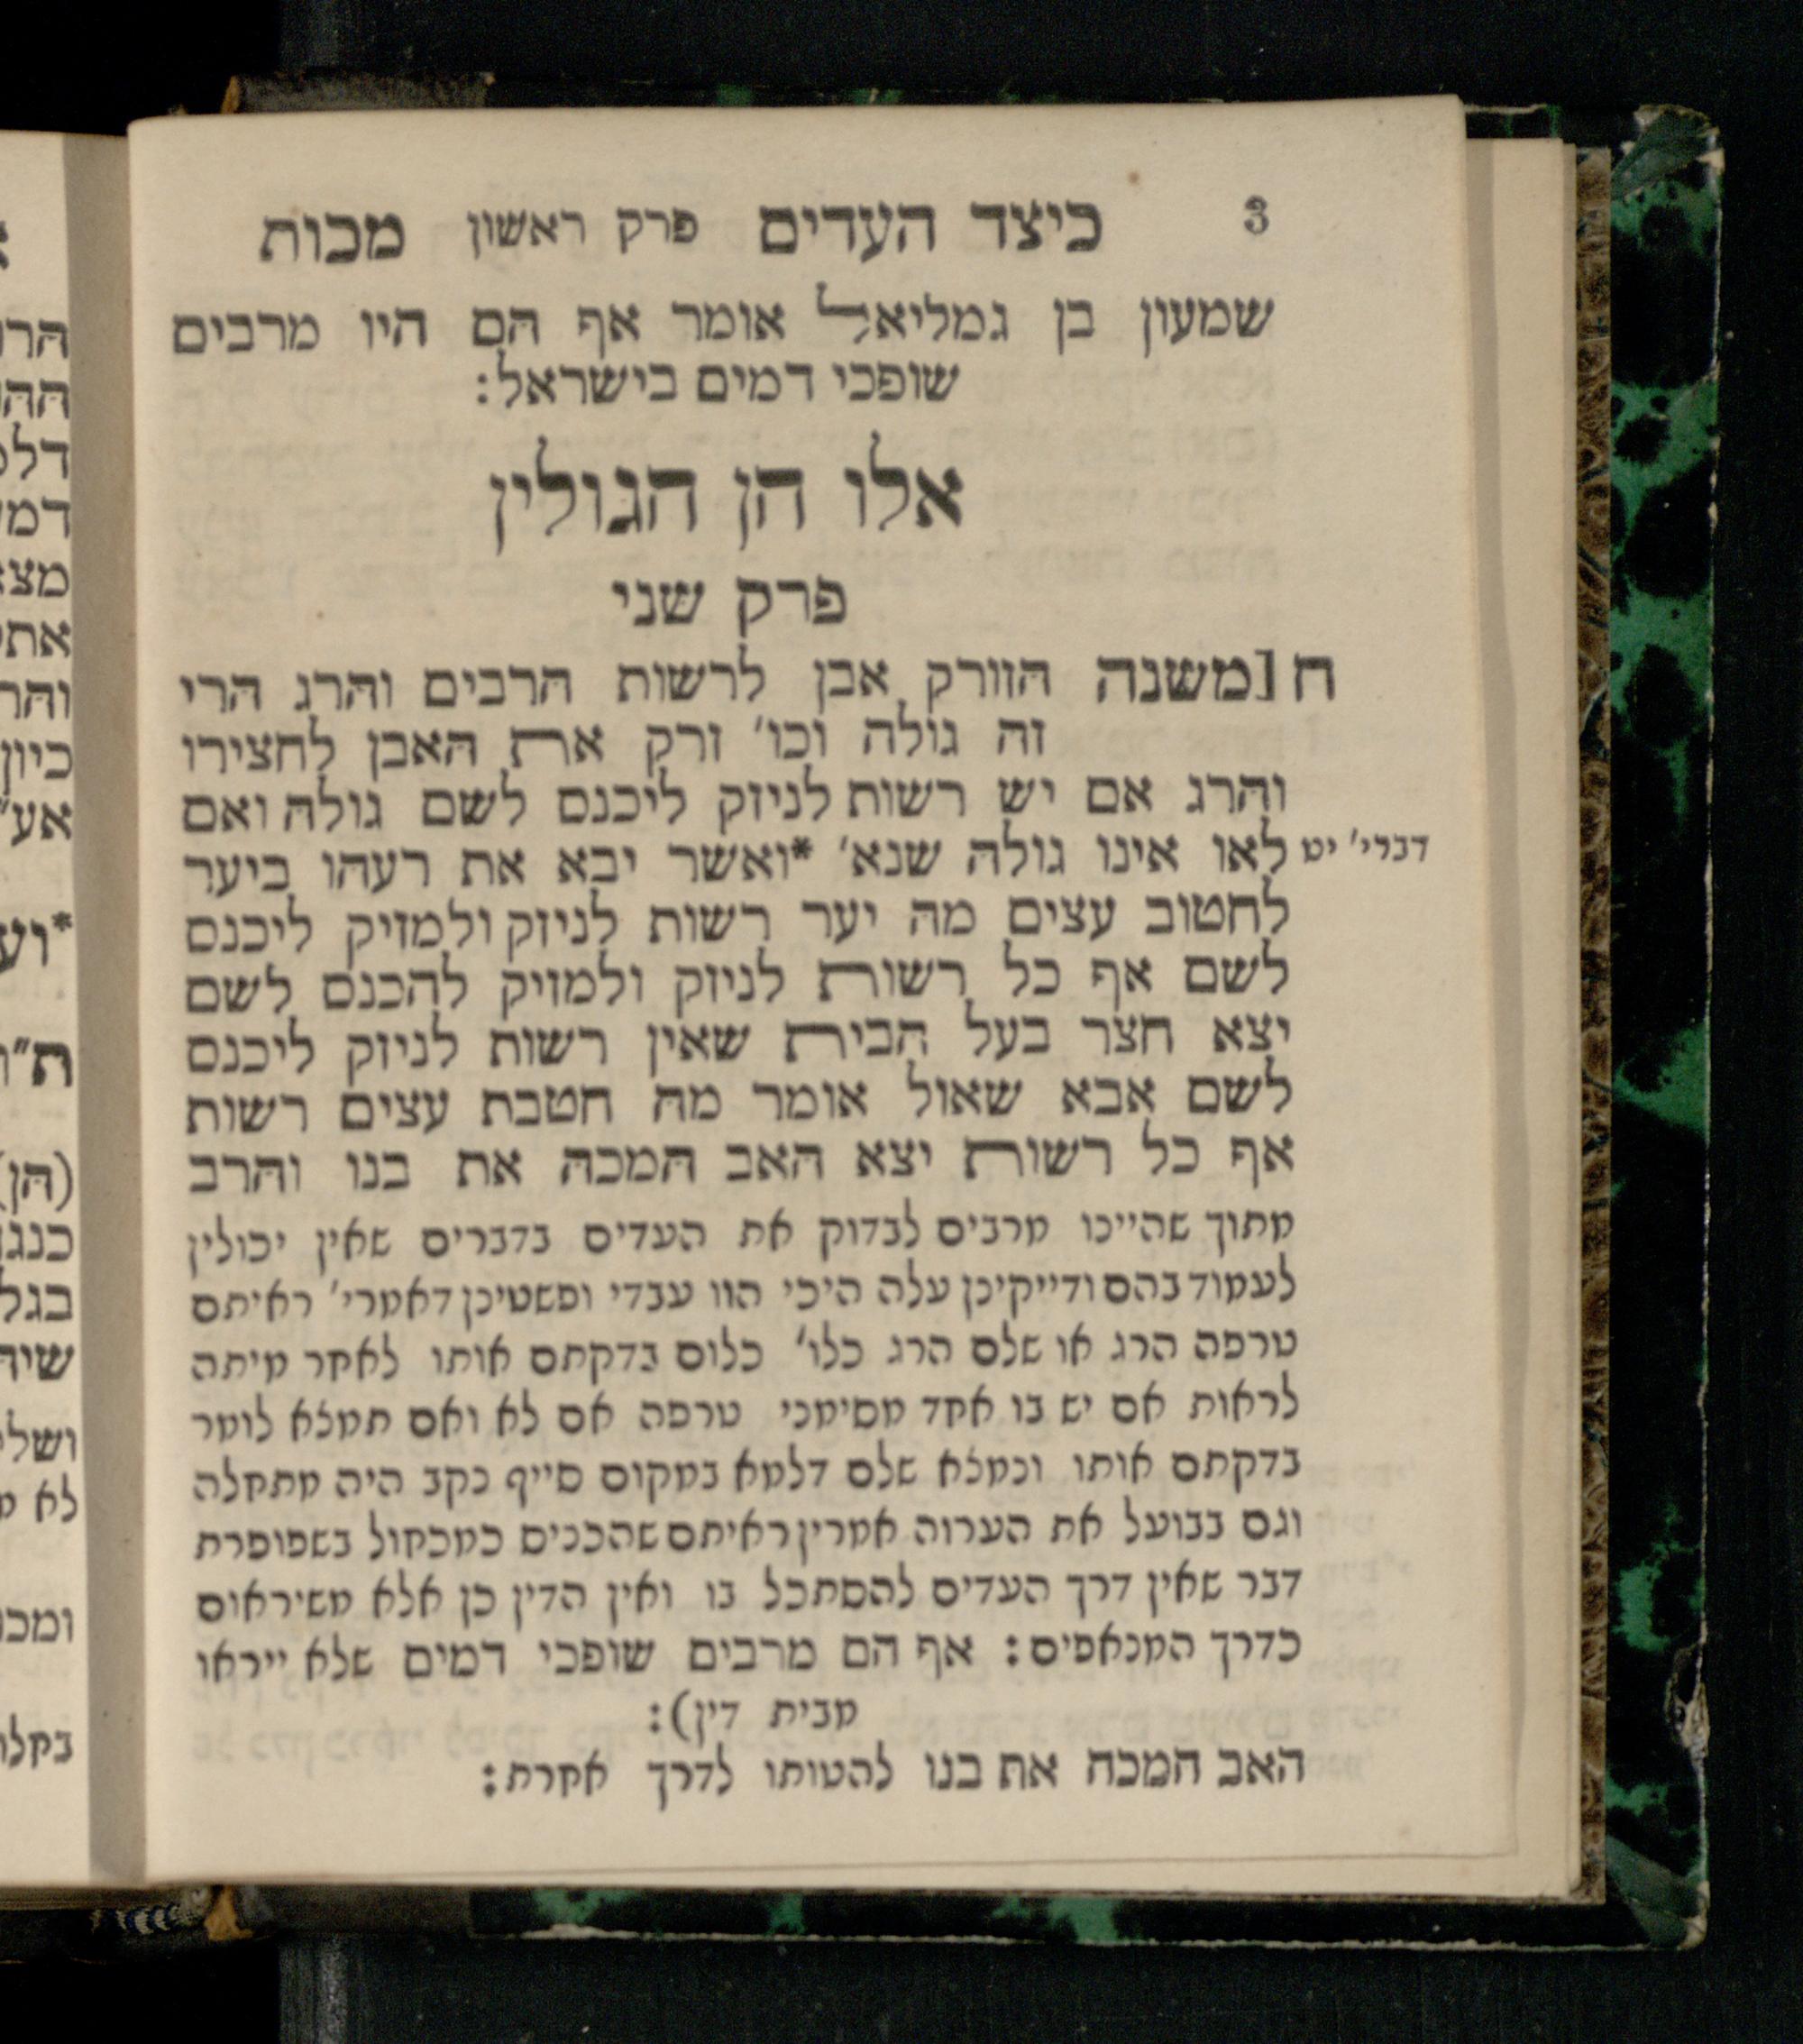 3 כיצד העדים פרק ראשון מכות
שמעון בן גמליאל אומר אף הם היו מרבים
שופכי דמים בישראל:
אלו הן הגולין
פרק שני
ח [משנה הזורק אבן לרשות הרבים והרג הרי
זה גולה וכו' זרק את האבן לחצירו
והרג אם יש רשות לניזק ליכנס לשם גולה ואם
דברי' יט לאו אינו גולה שנא' *ואשר יבא את רעהו ביער
לחטוב עצים מה יער רשות לניזק ולמזיק ליכנס
לשם אף כל רשות לניזק ולמזיק להכנס לשם
יצא חצר בעל הבית שאין רשות לניזק ליכנס
לשם אבא שאול אומר מה חטבת עצים רשות
אף כל רשות יצא האב המכה את בנו והרב
מתוך שהיינו מרבים לבדוק את העדים בדברים שאין יכולין
לעמוד בהם ודייקינן עלה היכי הוו עבדי ופשטינן דאמרי' ראיתם
טרפה הרג או שלם הרג כלו' כלום בדקתם אותו לאחר מיתה
לראות אם יש בו אחד מסימני טרפה אם לא ואם תמצא לומר
בדקתם אותו ונמצא שלם דלמא במקום סייף נקב היה מתחלה
וגם בבועל את הערוה אמרין ראיתם שהכניס כמכחול בשפופרת
דבר שאין דרך העדים להסתכל בו ואין הדין כן אלא משיראום
כדרך המנאפים: אף הם מרבים שופכי דמים שלא ייראו
מבית דין):
האב המכה את בנו להטותו לדרך אחרת: